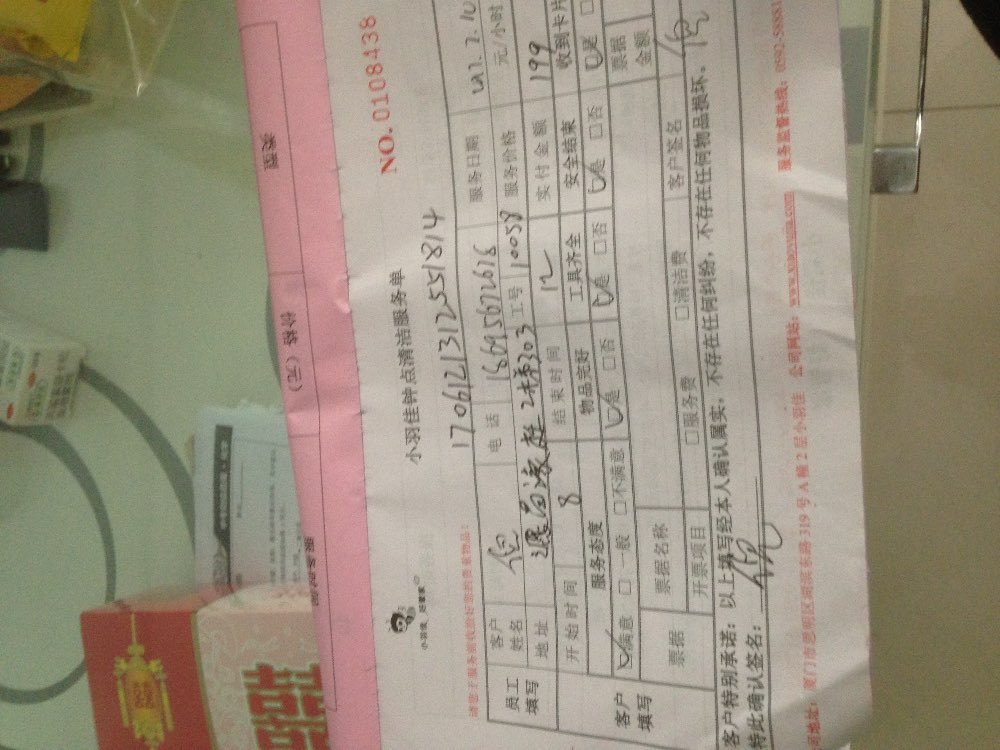 类型
价格（元）
NO.0108438
小羽佳钟点清洁服务单
小羽佳，好管家
170612131255 1814
请您于服务前收拾好您的贵重物品！
员工填写
客户姓名 倪 电话 18695672616 服务日期 2017.7.10
地址 2#303 工号 10058 服务价格 元/小时
开始时间 8 结束时间 12 实付金额 199
客户填写
服务态度 物品完好 工具齐全 安全结束 收到卡片
☑满意 □一般 □不满意 ☑是 □否 ☑是 □否 ☑是 □否 ☑是
票据 票据名称 □服务费 □清洁费 客户签名 票据金额
开票项目 倪
客户特别承诺：以上填写经本人确认属实，不存在任何纠纷，不存在任何物品损坏。
特此确认签名：倪
司地址：厦门市思明区湖滨东路319号A幢2层小羽佳 公司网站：www.xiaoyujia.com 服务监督热线：0592-58881